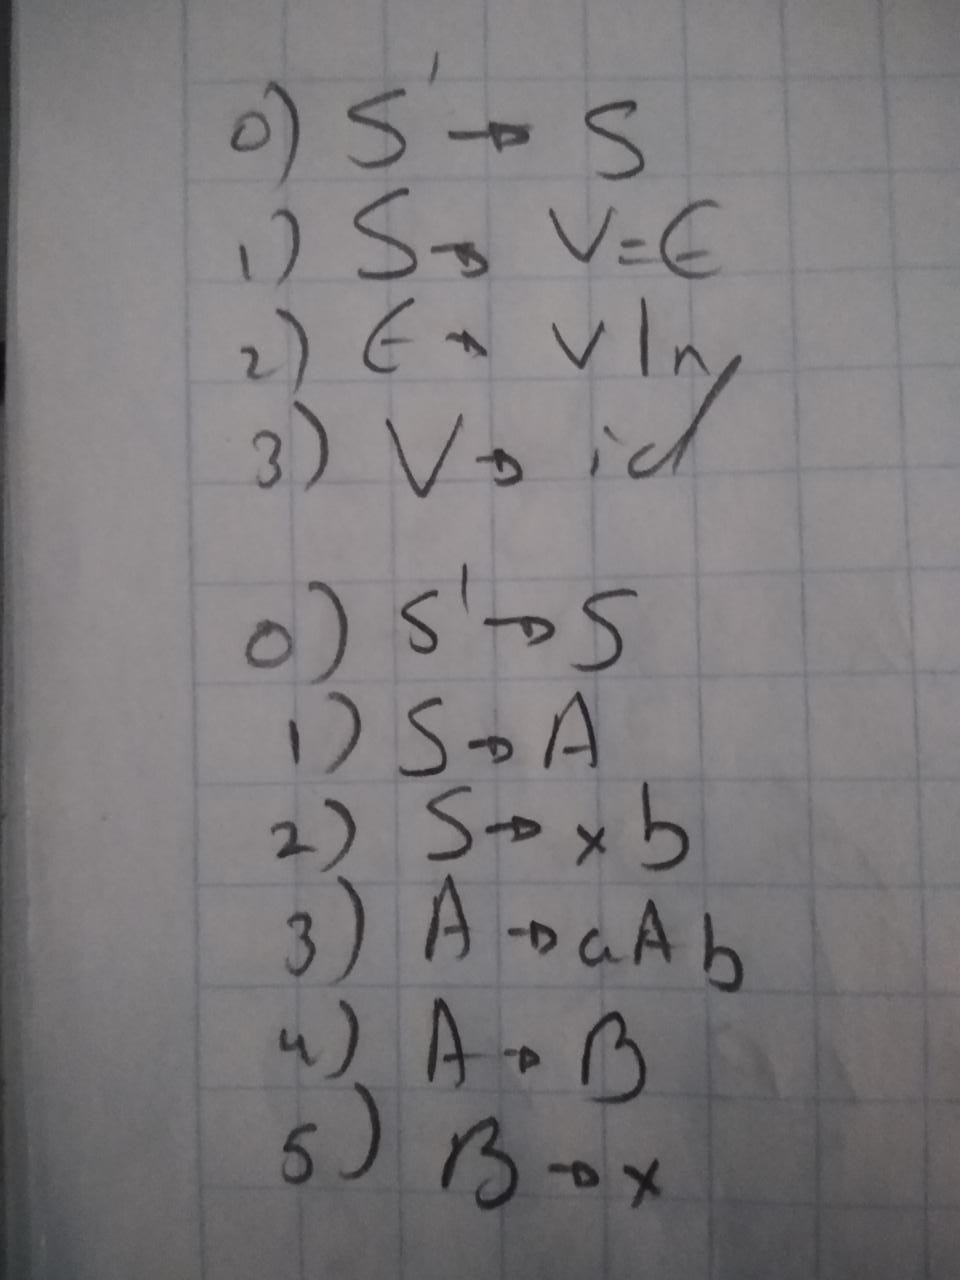 0) S' → S
1) S → V=E
2) E → V | n
3) V → id
0) S' → S
1) S → A
2) S → x b
3) A → a A b
4) A → B
5) B → x